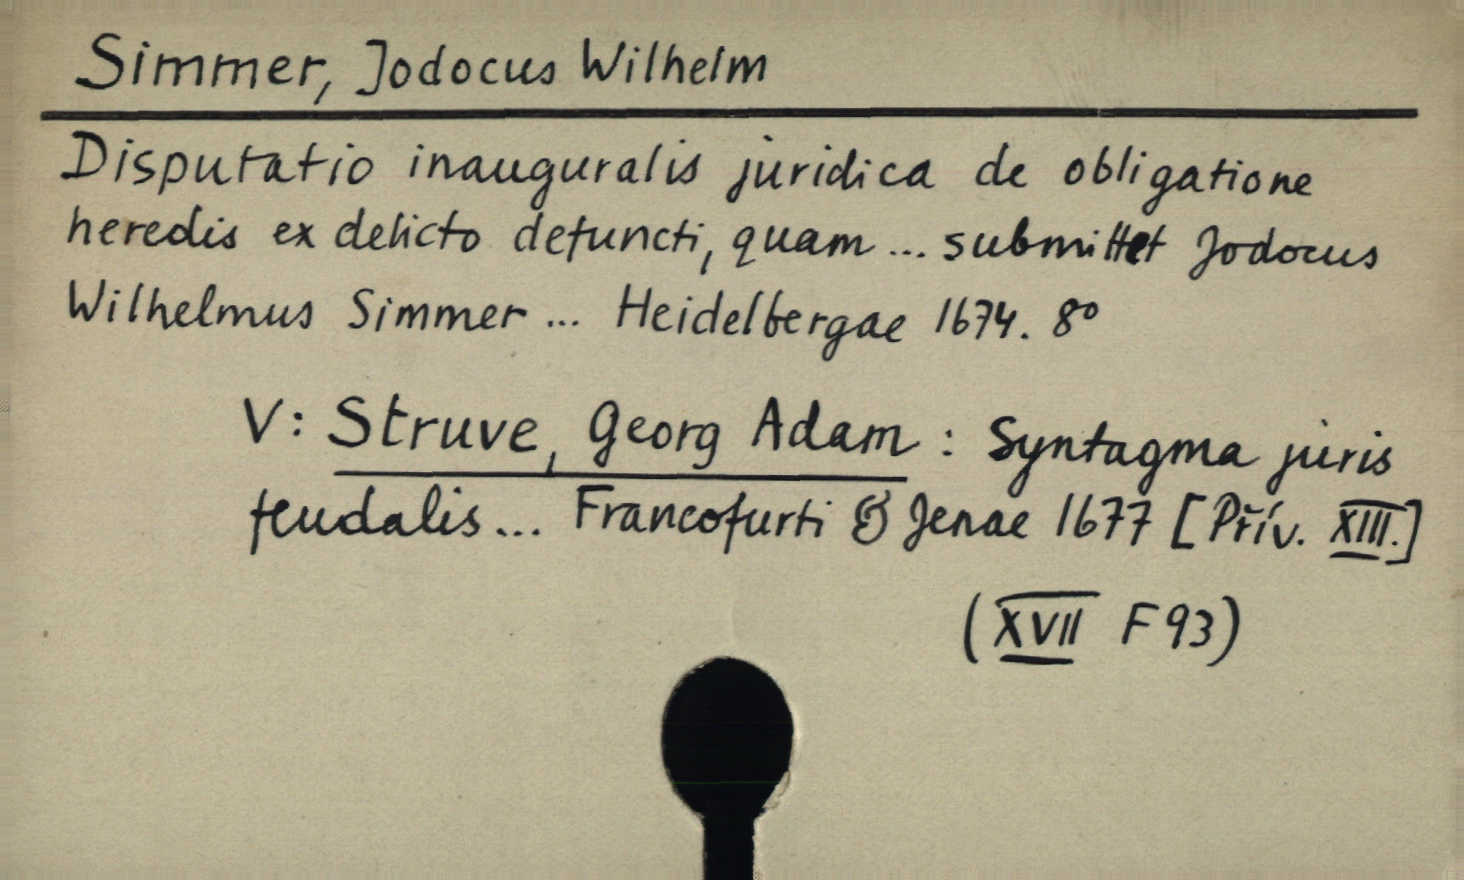 Simmer, Jodocus Wilhelm
Disputatio inauguralis juridica de obligatione
heredis ex delicto defuncti, quam ... submittet Jodocus
Wilhelmus Simmer ... Heidelbergae 1674. 8°
V: Struve, Georg Adam : Syntagma juris
feudalis ... Francofurti & Jenae 1677 [Přív. XIII.]
(XVII F 93)